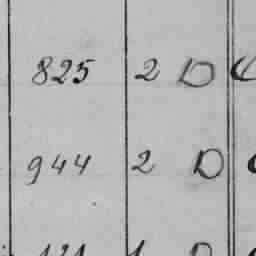 825 2 D
944 2 D